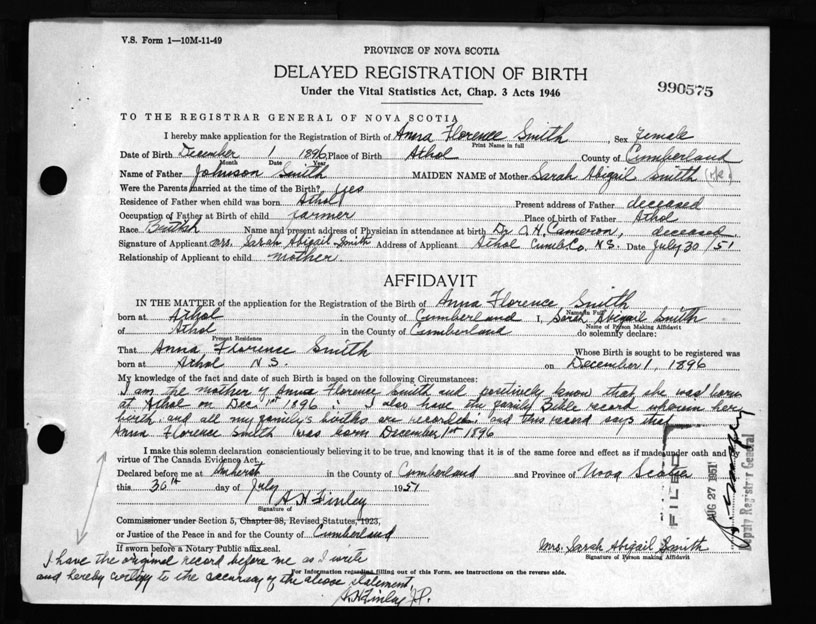 V.S. Form 1—10M-11-49
PROVINCE OF NOVA SCOTIA
DELAYED REGISTRATION OF BIRTH
Under the Vital Statistics Act, Chap. 3 Acts 1946
990575
TO THE REGISTRAR GENERAL OF NOVA SCOTIA
I hereby make application for the Registration of Birth of Anna Florence Smith, Sex Female
Print Name in full
Date of Birth December 1 1896 Place of Birth Athol County of Cumberland
Month Date Year
Name of Father Johnson Smith MAIDEN NAME of Mother Sarah Abigail Smith (ok)
Were the Parents married at the time of the Birth? yes
Residence of Father when child was born Athol Present address of Father deceased
Occupation of Father at Birth of child farmer Place of birth of Father Athol
Race British Name and present address of Physician in attendance at birth Dr. A. H. Cameron, deceased.
Signature of Applicant Mrs. Sarah Abigail Smith Address of Applicant Athol Cumb. Co. N.S. Date July 30/51
Relationship of Applicant to child mother.
AFFIDAVIT
IN THE MATTER of the application for the Registration of the Birth of Anna Florence Smith
Name in Full
born at Athol in the County of Cumberland I, Sarah Abigail Smith
Name of Person Making Affidavit
of Athol in the County of Cumberland do solemnly declare:
Present Residence
That Anna Florence Smith Whose Birth is sought to be registered was
born at Athol N.S. on December 1, 1896
My knowledge of the fact and date of such Birth is based on the following Circumstances:
I am the mother of Anna Florence Smith and positively know that she was born
at Athol on Dec. 1st 1896. I also have the family Bible record wherein her
birth, and all my family's births are recorded and this record says that
Anna Florence Smith was born December 1st 1896
I make this solemn declaration conscientiously believing it to be true, and knowing that it is of the same force and effect as if made under oath and by
virtue of The Canada Evidence Act.
Declared before me at Amherst in the County of Cumberland and Province of Nova Scotia
this 30th day of July 1951
A H Finley
Signature of
Commissioner under Section 5, Chapter 38, Revised Statutes, 1923,
or Justice of the Peace in and for the County of Cumberland
If sworn before a Notary Public affix seal.
Mrs. Sarah Abigail Smith
Signature of Person making Affidavit
For Information regarding filling out of this Form, see instructions on the reverse side.
I have the original record before me as I write
and hereby certify to the accuracy of the above statement
A H Finley J.P.
FILED
AUG 27 1951
Deputy Registrar General